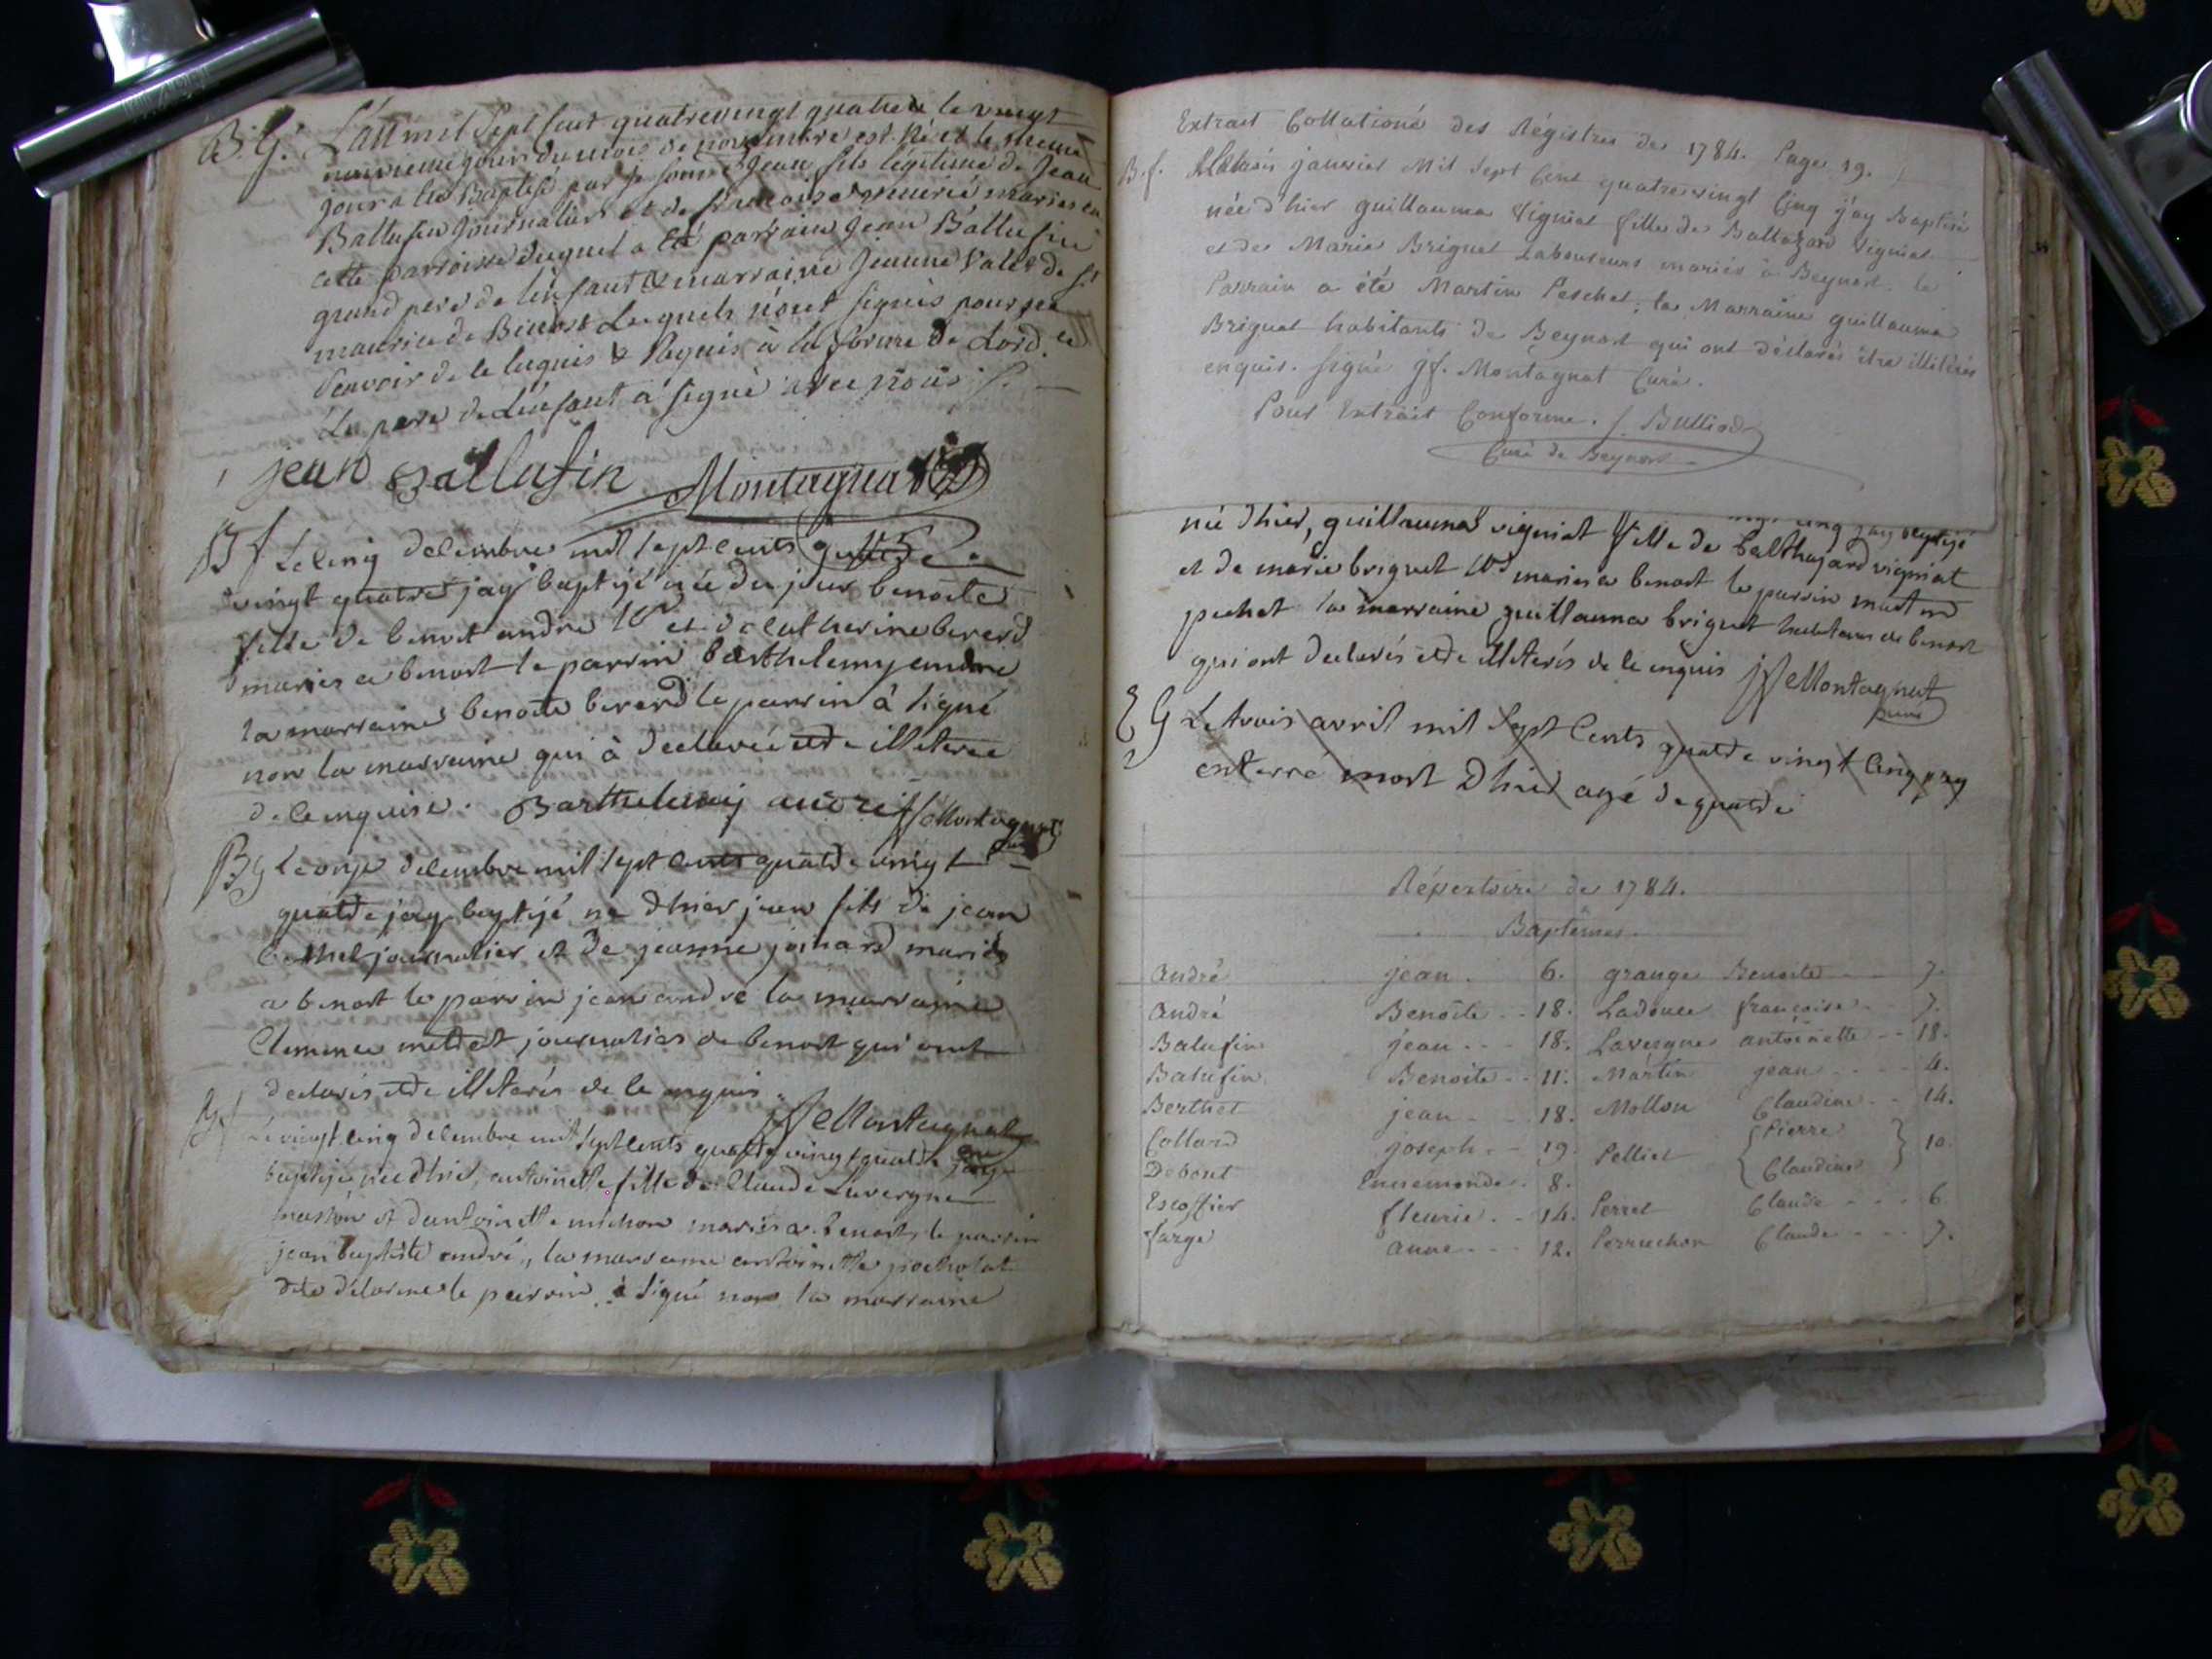 B. G. L'an mil Sept Cent quatrevingt quatre & le vingt
neuvieme jour du mois de novembre est né et le meme
jour a été Baptisé par je jean fils légitime de Jean
Ballufin journalier et de mariés en
cette parroisse duquel a été parrain Jean Ballufin
grand pere de lénfant & marraine Jeanne Valet de St
maurice de Beinost Lesquels n'ont signés pour ne
scavoir de ce enquis & Requis à la forme de Lord.ce
Le pere de L'enfant à signé avec nous
jean Ballufin Montagnat
B f Le cinq decembre mil sept cents quatre
vingt quatre jay baptisé née du jour benoite
fille de benoit andré et de catherine bererd
mariés a benost le parrin barthelemy andre
la marraine benoite bererd le parrin à signé
non la marraine qui à declarée etre illiterée
de ce enquise. Barthelemy andré jf Montagnat
B g Le onze decembre mil sept cents quatre vingt
quatre jay baptisé ne dhier jean fils de jean
berthet journalier et de jeanne joinard mariés
a benost le parrin jean andré la marraine
Clemence journalier de benost qui ont
declarés etre illiterés de ce enquis
jf Montagnat
B f Le vingt cinq decembre mil sept cents quatre vingt quatre jay
baptisée née dhier antoinette fille de Claude Lavergne
masson et dantoinette michon mariés a benost, le parrin
jean baptiste andré, la marraine antoinette
dite delorme le parrin à signé non la marraine
Extrait Collationé des Régistres de 1784. Page 19.
B. f. Le trois janvier Mil Sept Cent quatrevingt Cinq j'ay Baptisé
née d'hier guillauma Vigniat fille de Baltazard Vigniat
et de Marie Briguet Laboureurs mariés à Beynost. le
Parrain a été Martin Peschet; la Marraine guillauma
Briguet habitants de Beynost qui ont déclarés être illitérés
enquis. signé jf. Montagnat Curé.
Pour Extrait Conforme. J. Bulliod
Curé de Beynost
cinq jay baptisé
née dhier, guillauma vigniat fille de balthazard vigniat
et de marie briguet mariés a benost le parrin martin
pechet la marraine guillauma briguet habitans de benost
qui ont declarés etre illiterés de ce enquis jf Montagnat
curé
E G Le trois avril mil sept Cents quatre vingt cinq jay
enterré mort Dhier agé de quatre
Répertoire de 1784.
Baptêmes
André jean 6. grange Benoite 7.
André Benoîte 18. Ladouce françoise 7.
Balufin jean 18. Lavergne antoinette 18.
Balufin Benoite 11. Martin jean 4.
Berthet jean 18. Mollon Claudine 14.
Collard joseph 19. Pellict { Pierre Claudine } 10.
Debout Ennemonde 8.
Escoffier fleurie 14. Perret Claude 6.
farge anne 12. Perruchon Claude 7.